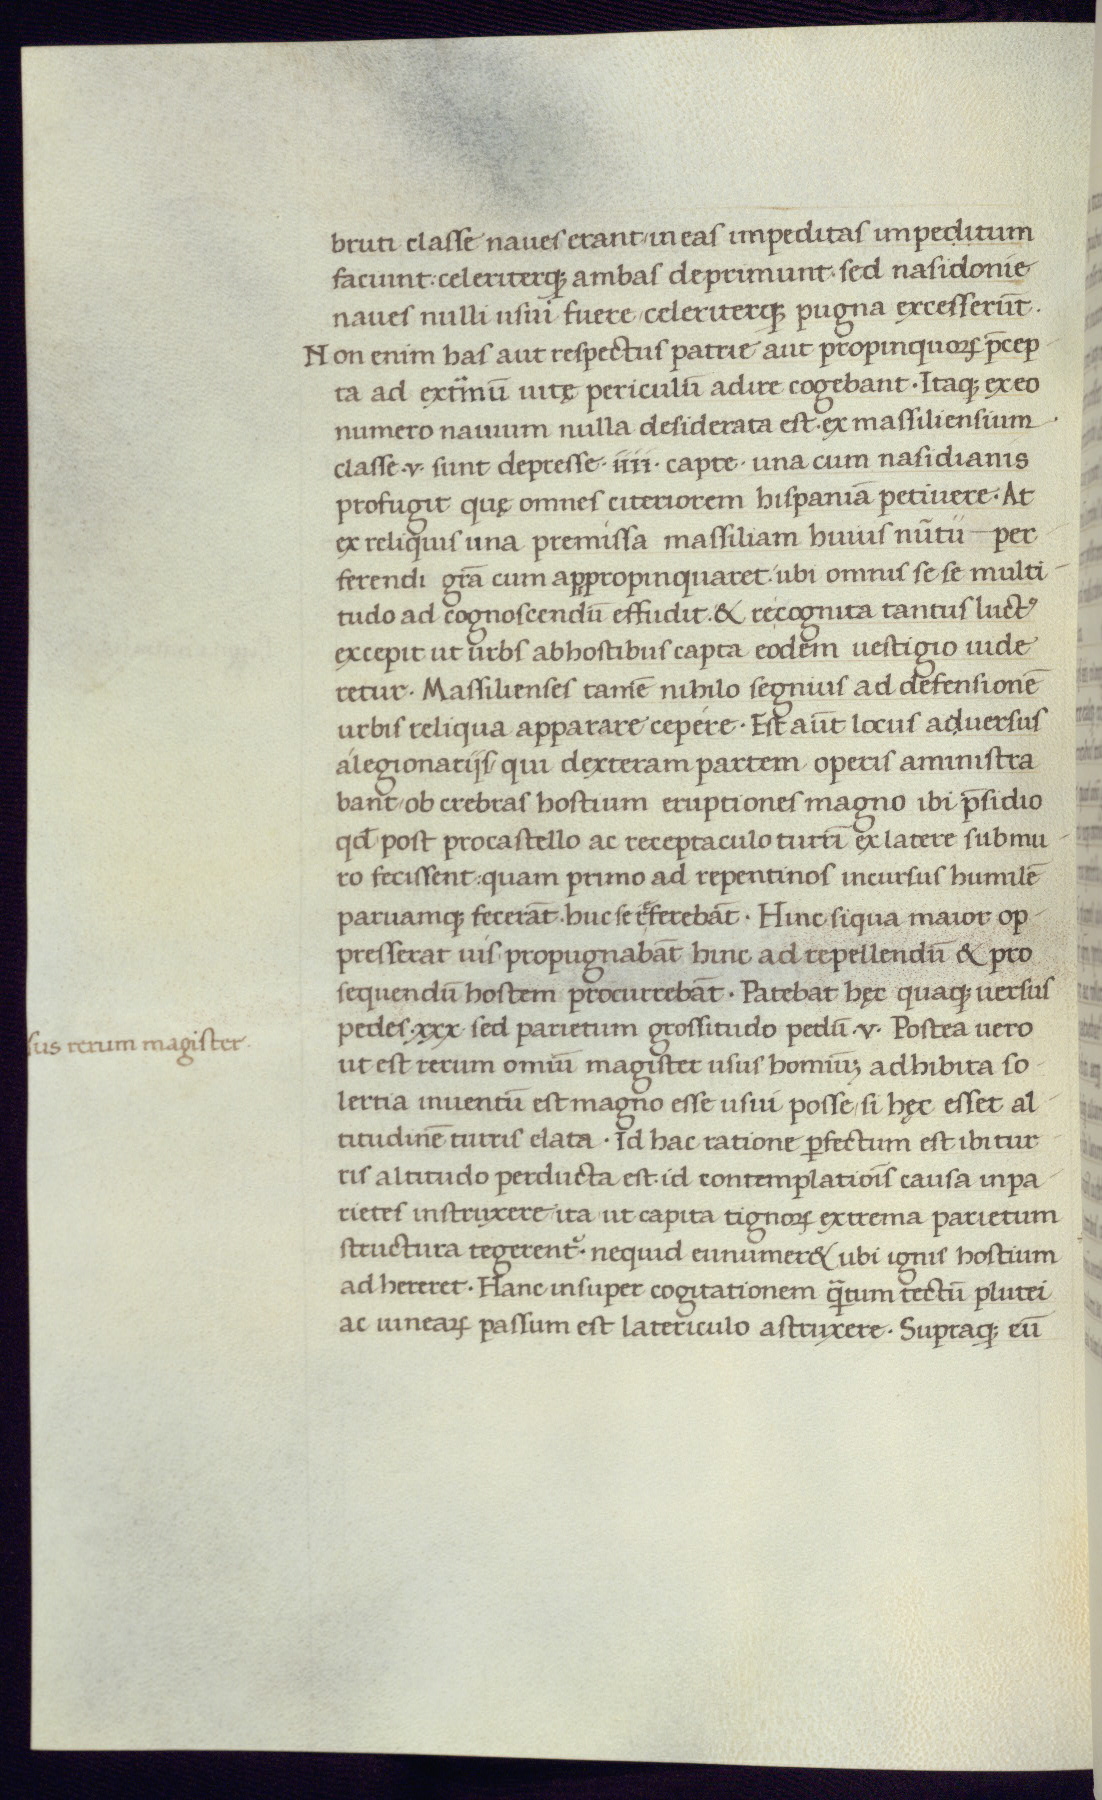 bruti classe naues erant in eas impeditas impeditum
faciunt: celeriterq; ambas deprimunt. sed nasidonie
naues nulli usui fuere celeriterq; pugna excesserūt.
Non enim has aut respectus patrie aut propinquoꝝ p̄cep
ta ad extimū uitę periculū adire cogebant. Itaq; ex eo
numero nauium nulla desiderata est. ex massiliensium
classe .v. sunt depresse. iiii. capte. una cum nasidianis
profugit quę omnes citeriorem hispaniā petiuere. At
ex reliquis una premissa massiliam huius nūtii per
ferendi grā cum appropinquaret. ubi omnis se se multi
tudo ad cognoscendū effudit. & recognita tantus luctꝰ
excepit ut urbs ab hostibus capta eodem uestigio uide
retur. Massilienses tamē nihilo segnius ad defensionē
urbis reliqua apparare cepere. Est aūt locus aduersus
a legionarijs qui dexteram partem operis aministra
bant ob crebras hostium eruptiones magno ibi p̄sidio
qd̄ post pro castello ac receptaculo turrī ex latere sub mu
ro fecissent: quam primo ad repentinos incursus humilē
paruamq; fecerāt. huc se referebāt. Hinc siqua maior op
presserat uis propugnabāt hinc ad repellendū & pro
sequendū hostem procurrebāt. Patebat hęc quaq; uersus
pedes .xxx sed parietum grossitudo pedū .v. Postea uero
sus rerum magister
ut est rerum omiū magister usus homiū; adhibita so
lertia inuentū est magno esse usui posse si hęc esset al
titudinē turris elata. Id hac ratione ꝑfectum est ibi tur
ris altitudo perducta est. id contemplatiōis causa in pa
rietes instruxere ita ut capita tignoꝝ extrema parietum
structura tegerent. nequid eunumer& ubi ignis hostium
ad hereret. Hanc insuper cogitationem q̄tum tectū plutei
ac uineaꝝ passum est latericulo astruxere. Supraq; eū